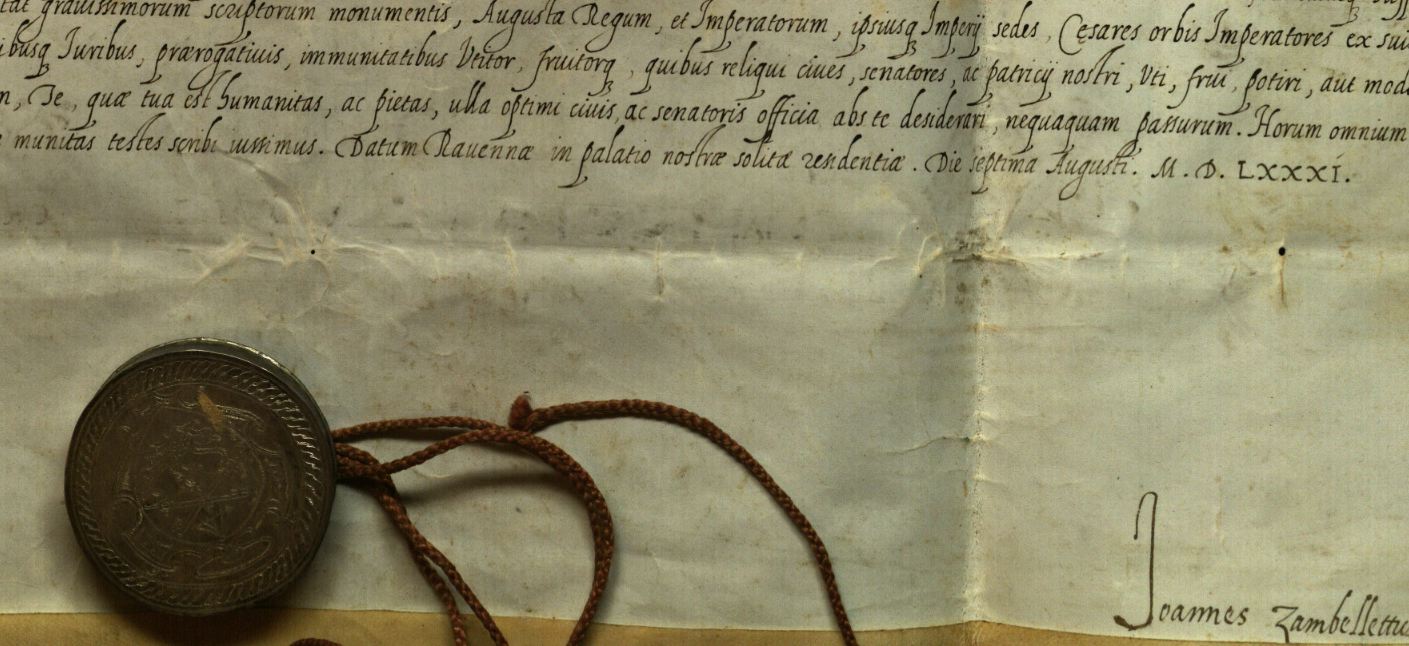 gravissimorum scriptorum monumentis, Augusta Regum, et Imperatorum, ipsiusq Imperij sedes, Cęsares orbis Imperatores ex
Iuribus, prærogatiuis, immunitatibus Vtitor, fruitorq, quibus reliqui ciues, senatores, ac patricij nostri, Vti, frui, potiri, aut
Te, quæ tua est humanitas, ac pietas, ulla optimi ciuis, ac senatoris officia abs te desiderari, nequaquam passurum. Horum omnium
munitas testes scribi iussimus. Datum Rauennæ in palatio nostræ solitæ residentiæ. Die septima Augusti. M. D. LXXXI.
Ioannes Zambellettus